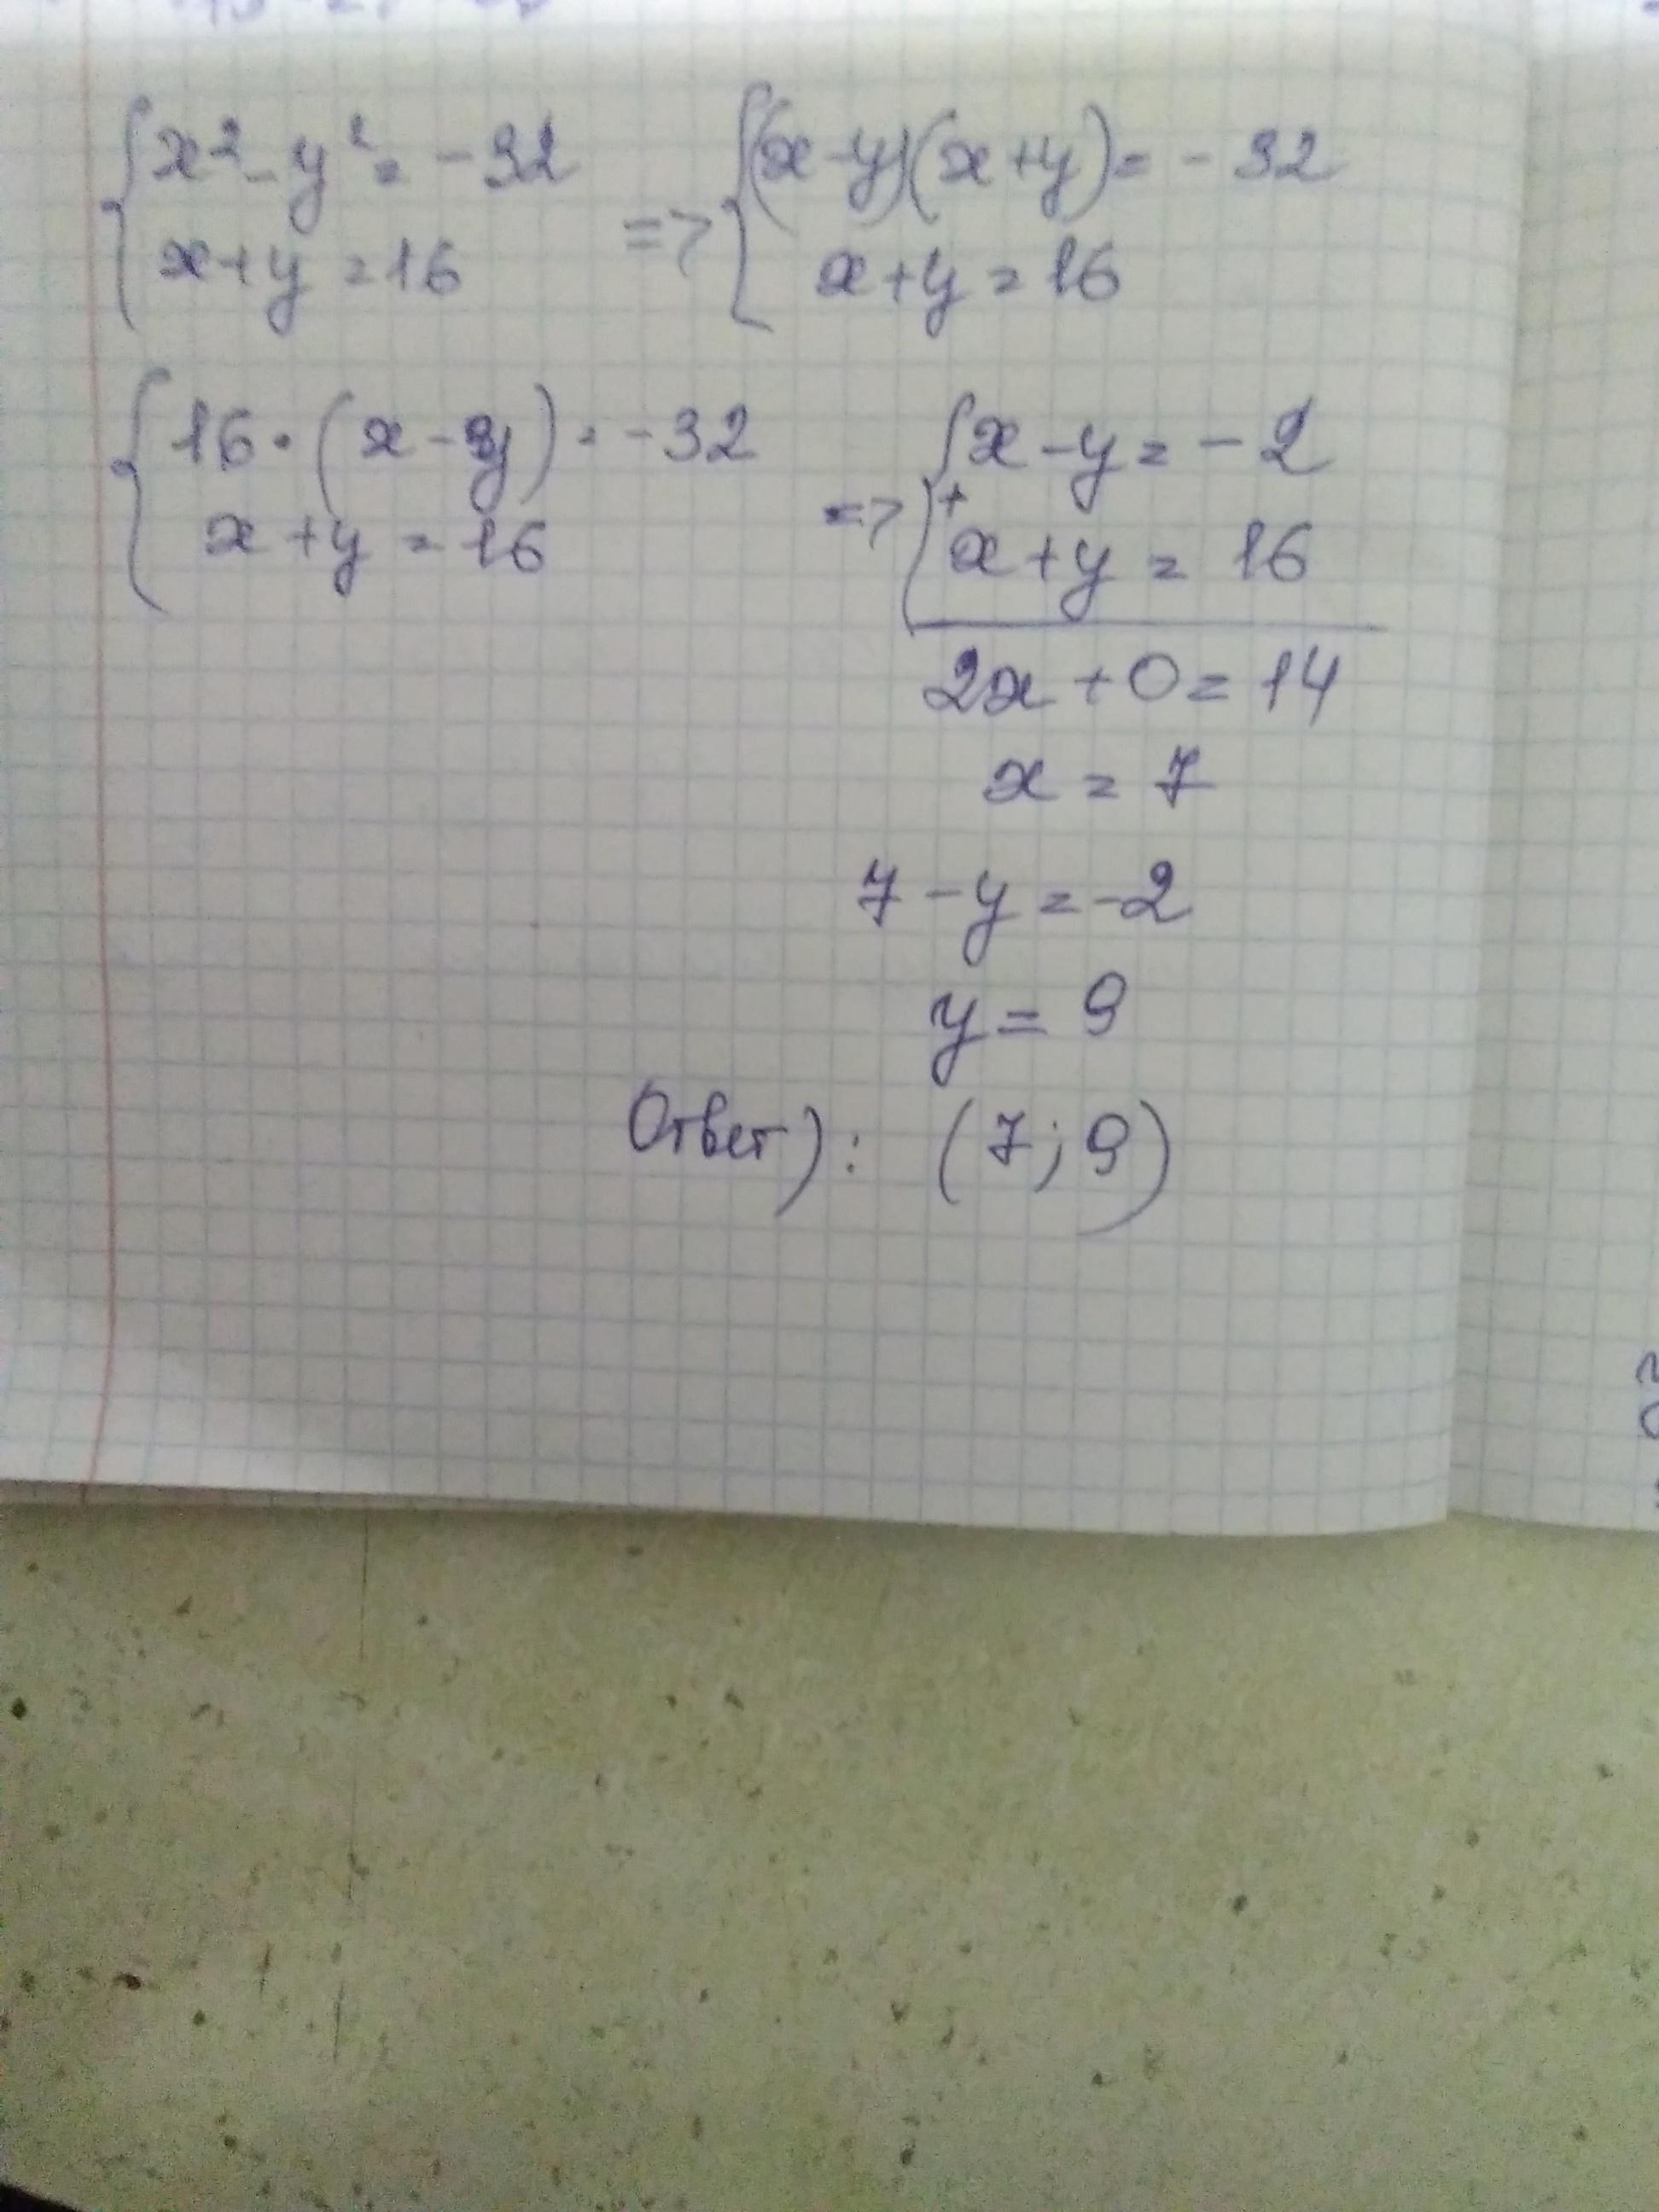 { x² - y² = -32 => { (x-y)(x+y) = -32
x + y = 16 x + y = 16
{ 16 · (x - y) = -32 => { x - y = -2
x + y = 16 + x + y = 16
2x + 0 = 14
x = 7
7 - y = -2
y = 9
Ответ): (7; 9)